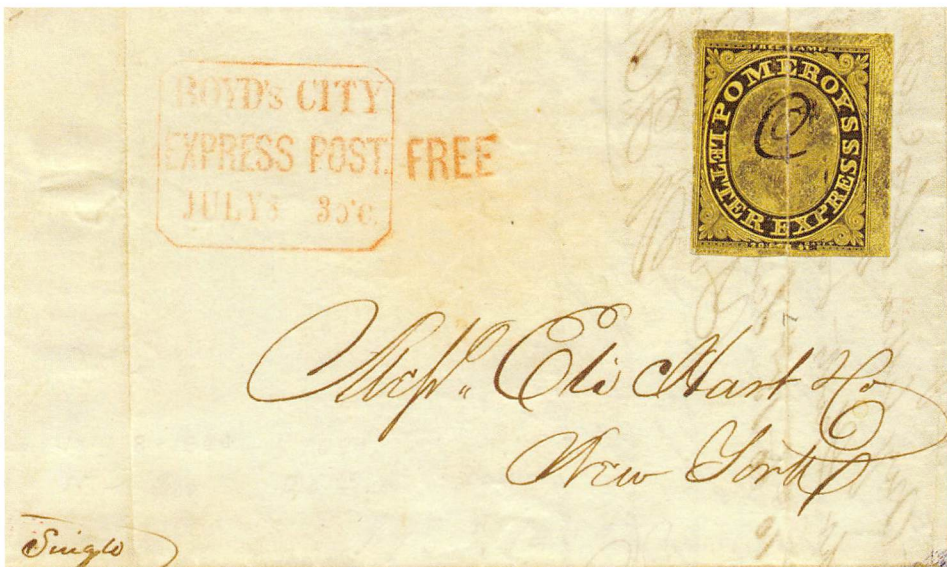 BOYD'S CITY
EXPRESS POST.
JULY 3O'C.
FREE
FREE STAMP
POMEROYS
LETTER EXPRESS
Messrs. Eli Hart & Co
New York
Single